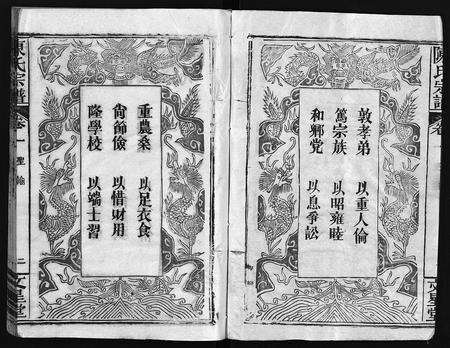 陳氏宗譜
卷
敦孝弟 以重人倫
篤宗族 以昭雍睦
和鄉党 以息爭訟
文星堂
重農桑 以足衣食
尙節儉 以惜財用
隆學校 以端士習
陳氏宗譜
卷一
聖諭
二
文星堂